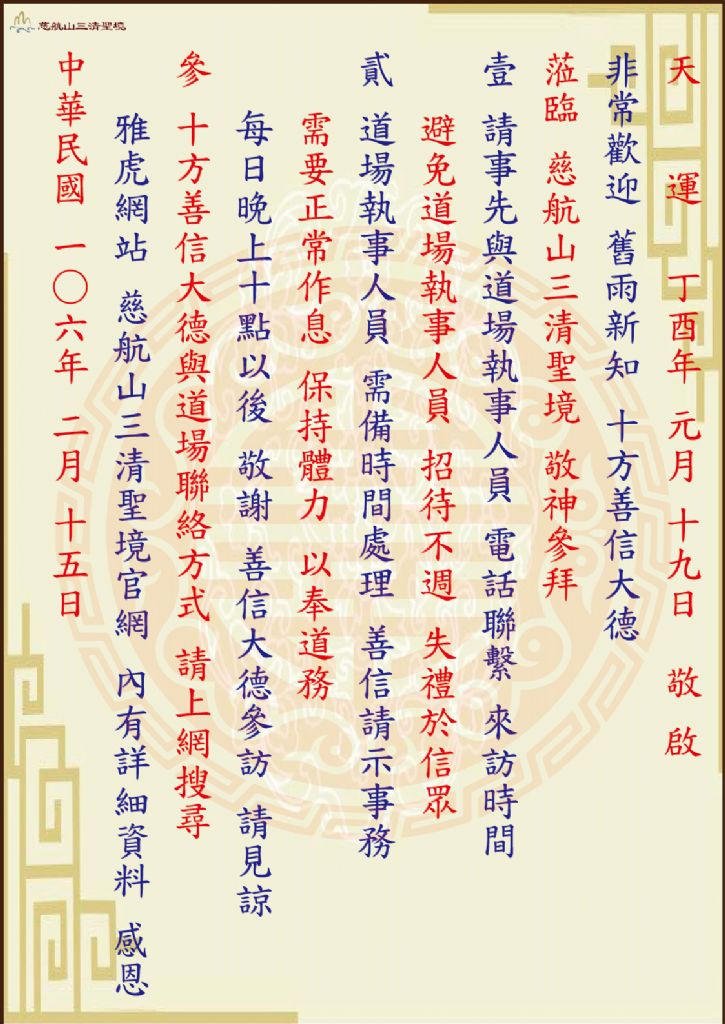 慈航山三清聖境
天 運 丁酉年 元月 十九日 敬 啟
非常歡迎 舊雨新知 十方善信大德
蒞臨 慈航山三清聖境 敬神參拜
壹 請事先與道場執事人員 電話聯繫 來訪時間
避免道場執事人員 招待不週 失禮於信眾
貳 道場執事人員 需備時間處理 善信請示事務
需要正常作息 保持體力 以奉道務
每日晚上十點以後 敬謝 善信大德參訪 請見諒
參 十方善信大德與道場聯絡方式 請上網搜尋
雅虎網站 慈航山三清聖境官網 內有詳細資料 感恩
中華民國 一〇六年 二月 十五日